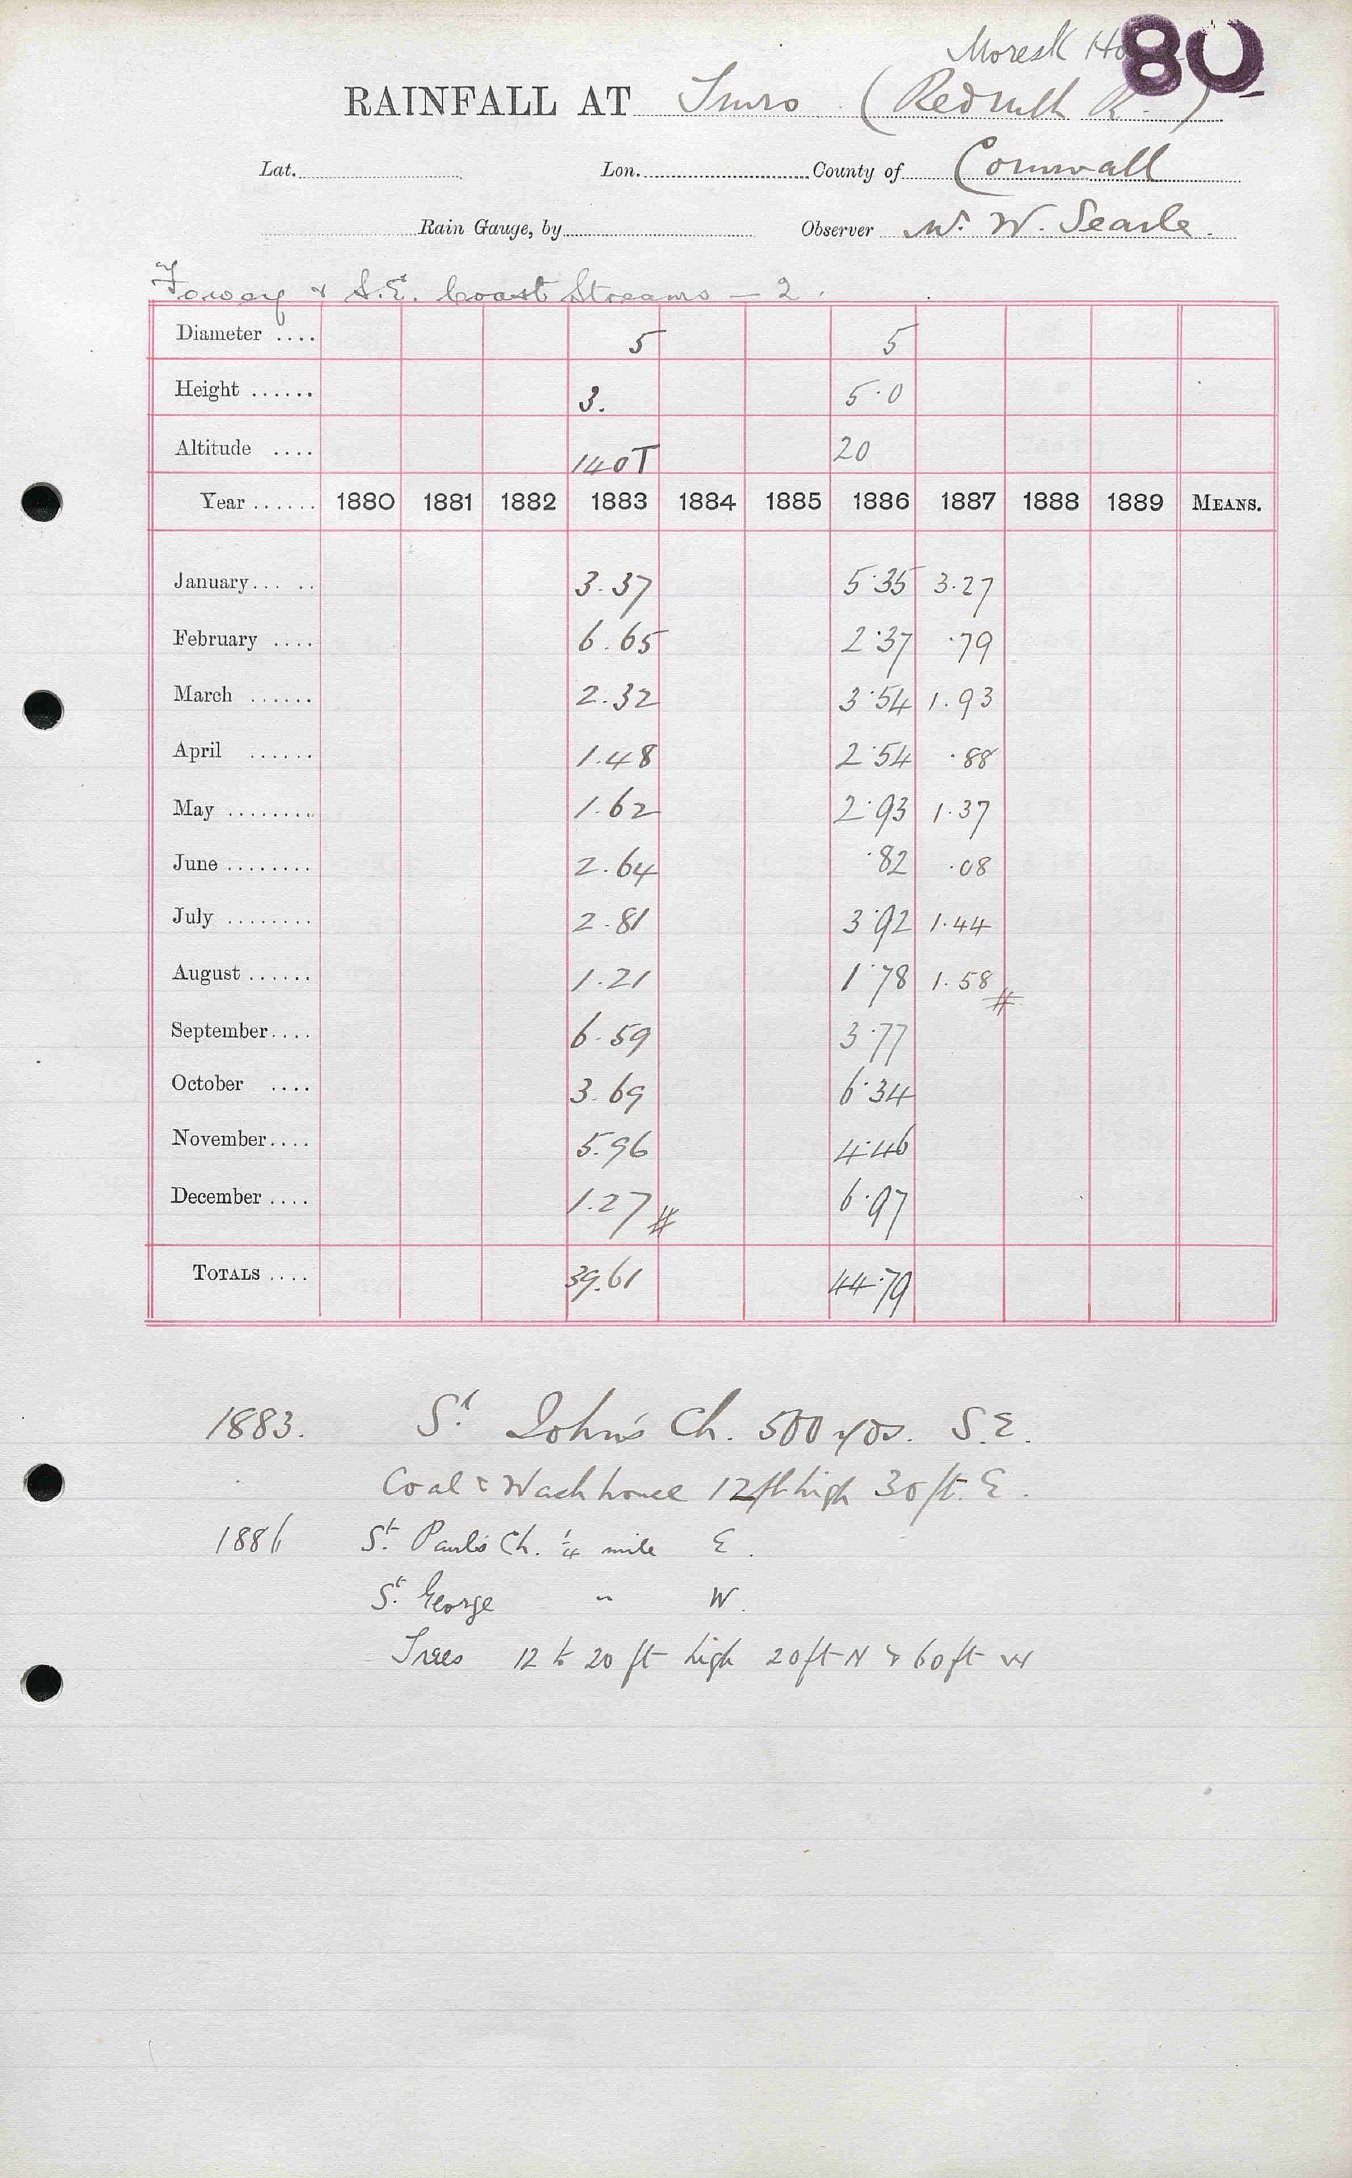 Moresk Ho 80
RAINFALL AT Truro (Redruth R.)
Lat. Lon. County of Cornwall
Rain Gauge, by Observer W. W. Searle.
Fowey & S.E. Coast Streams - 2.
Diameter .... 5 5
Height ...... 3. 5.0
Altitude .... 140T 20
Year ...... 1880 1881 1882 1883 1884 1885 1886 1887 1888 1889 MEANS.
January... .. 3.37 5.35 3.27
February .... 6.65 2.37 .79
March ...... 2.32 3.54 1.93
April ...... 1.48 2.54 .88
May ........ 1.62 2.93 1.37
June ........ 2.64 .82 .08
July ........ 2.81 3.92 1.44
August ...... 1.21 1.78 1.58 #
September.... 6.59 3.77
October .... 3.69 6.34
November.... 5.96 4.46
December .... 1.27 # 6.97
TOTALS .... 39.61 44.79
1883. St John's Ch. 500 yds. S.E.
Coal & Wash house 12ft high 30ft. E.
1886 St. Paul's Ch. ¼ mile E.
St. George " W.
Trees 12 to 20 ft high 20ft N & 60ft W